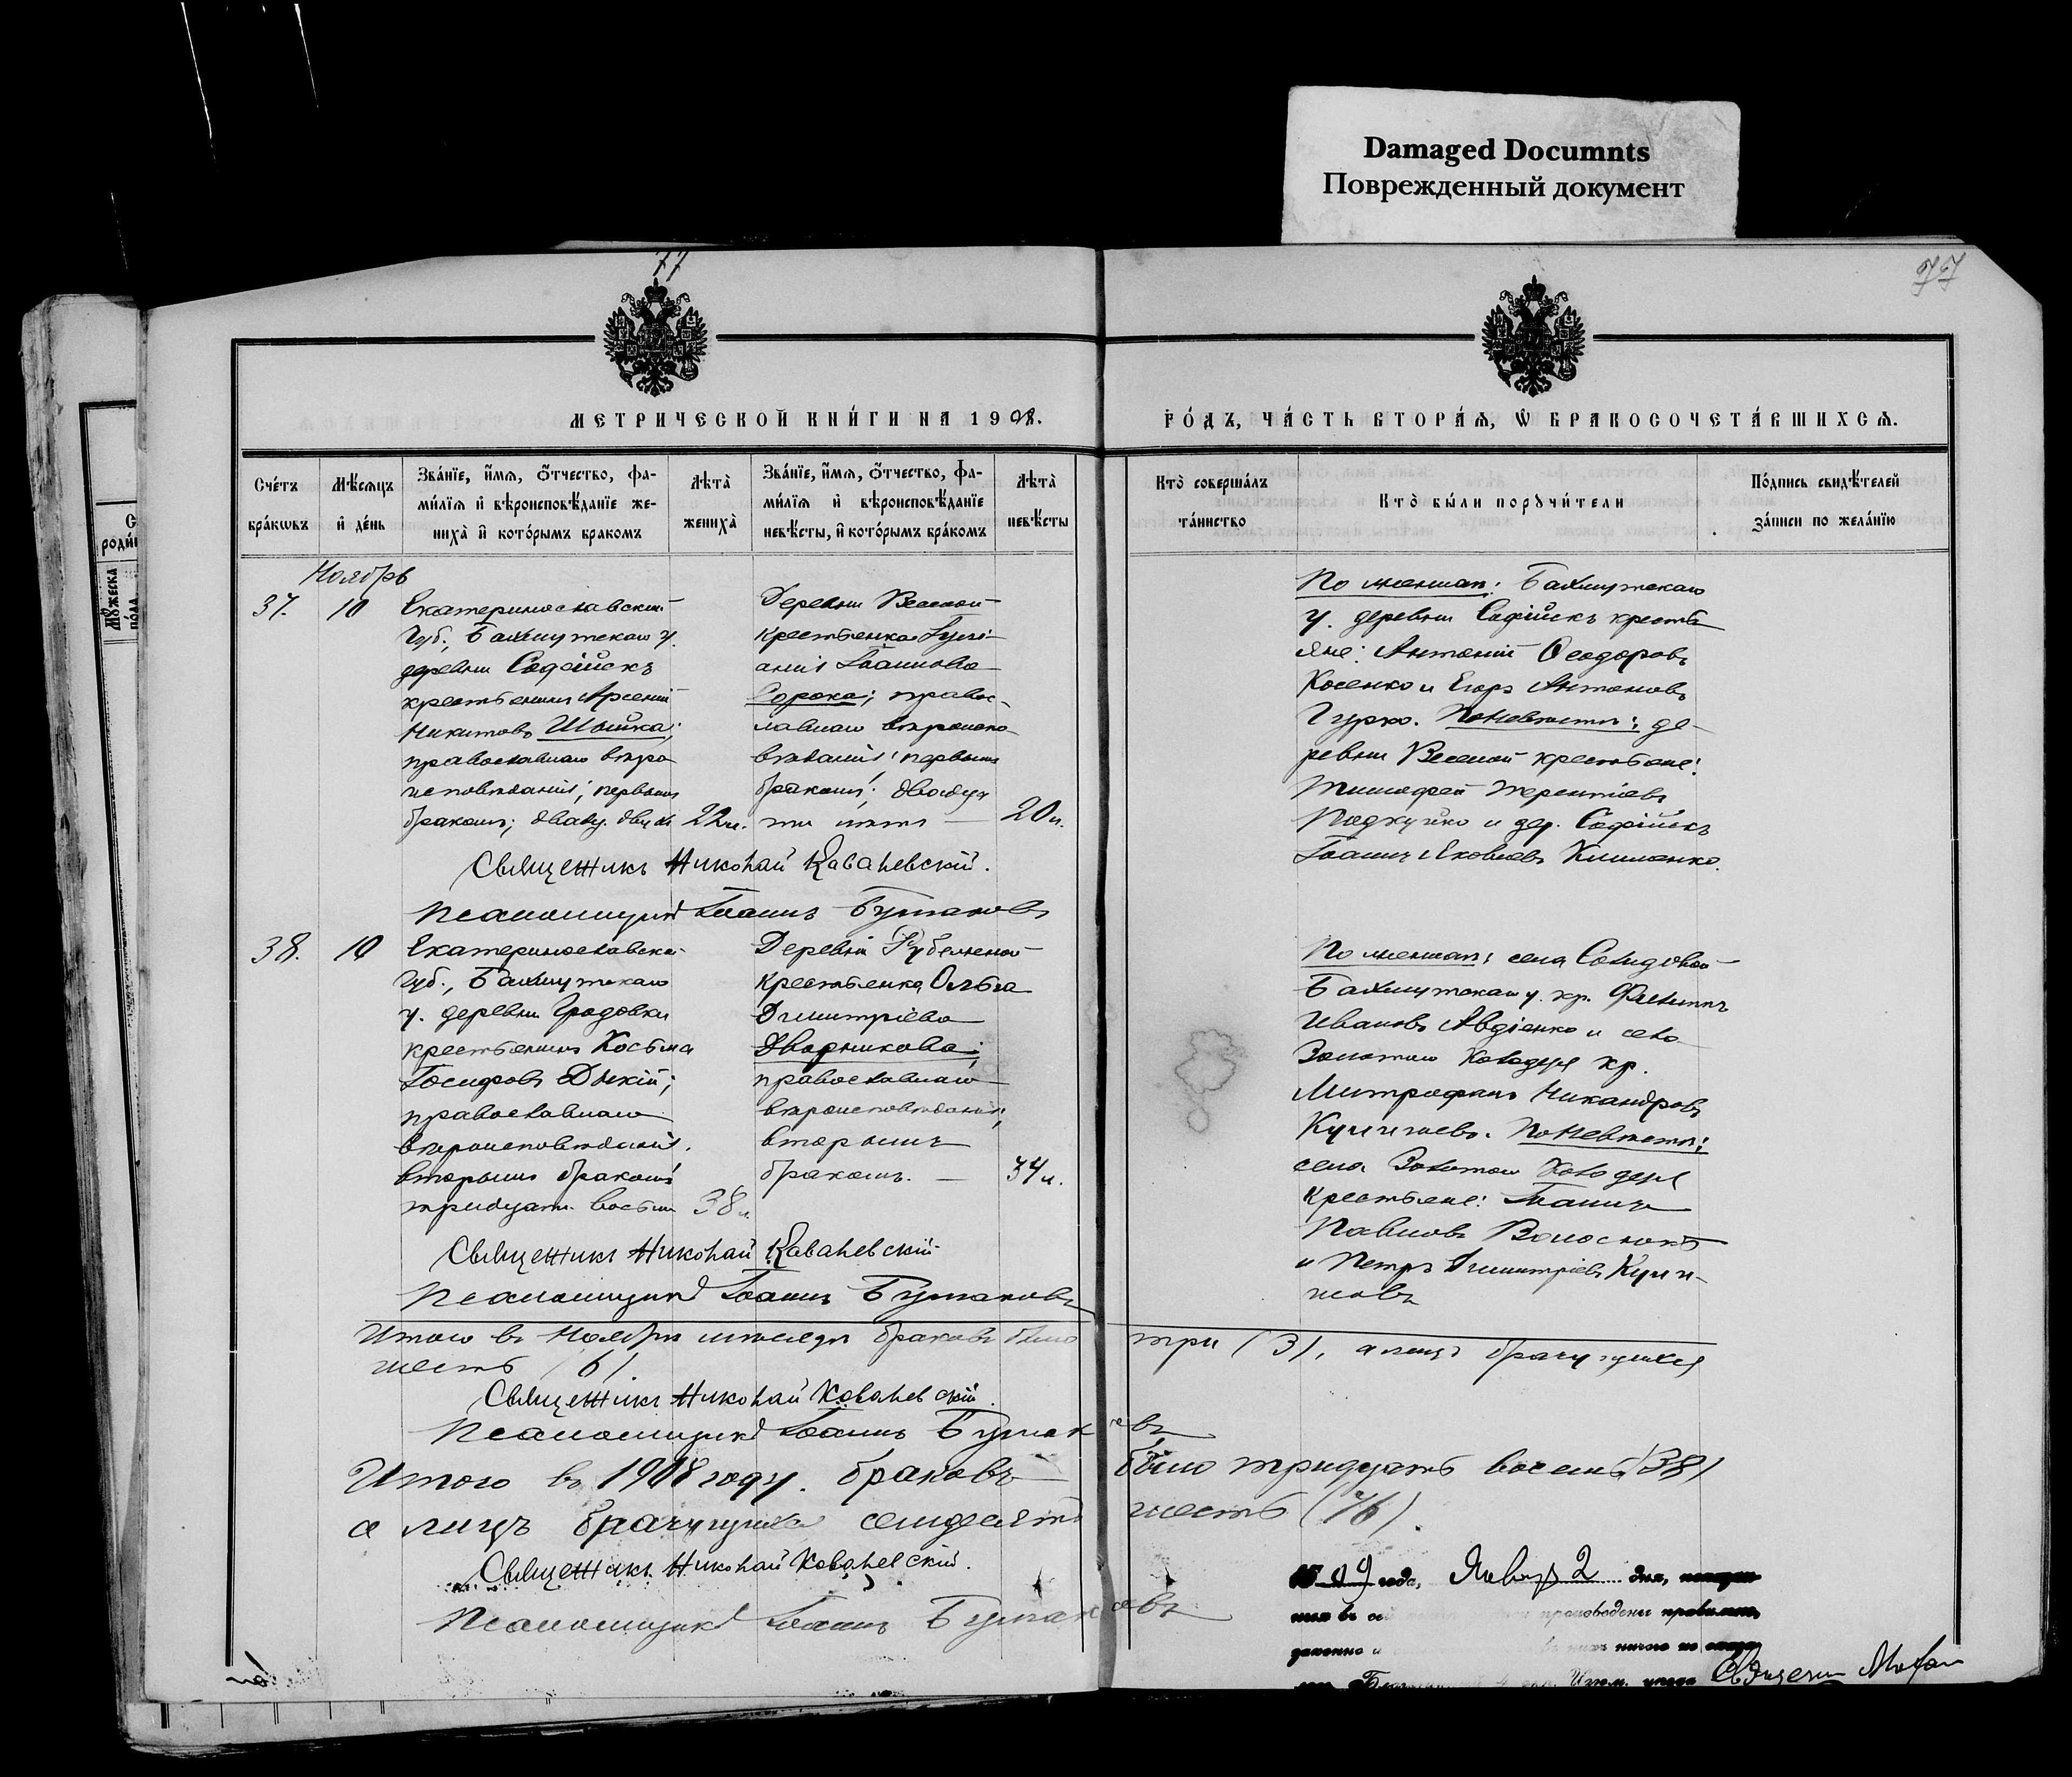 Damaged Documnts
Поврежденный документ
77
77
МЕТРИЧЕСКОЙ КНИ́ГИ НА 1908.
ГО́ДЪ, ЧА́СТЬ ВТОРА́Ѧ, Ѽ БРАКОСОЧЕТА́ВШИХСѦ.
Сче́тъ бра́кѡвъ
Мѣ́сѧцъ и҆ де́нь
Зва́нїе, и҆́мѧ, ѻ҆́тчество, фамѝлїѧ и҆ вѣроисповѣ́данїе жениха̀ и҆ кото́рымъ бракомъ
Лѣта̀ жениха̀
Зва́нїе, и҆́мѧ, ѻ҆́тчество, фамѝлїѧ и҆ вѣроисповѣ́данїе невѣ́сты, и҆ кото́рымъ бра́комъ
Лѣта̀ невѣ́сты
Кто̀ соверша́лъ та́инство
Кто̀ бы́ли порꙋчи́тели
По́дпись свидѣ́телей за́писи по жела́нїю
Ноябрь
37.
10
Екатеринославской
Губ., Бахмутскаго у.
деревни Софійскъ
крестьянинъ Арсеній
Никитовъ Шышка;
православнаго вѣро
исповѣданія, первымъ
бракомъ; двадц. двухъ
22 л.
Деревни Веселой
крестьянка
Іоаннова
Сорока; право-
славнаго вѣроиспо
вѣданія; первымъ
бракомъ; двадца
ти лѣтъ
20 л.
По женихѣ: Бахмутскаго
у. деревни Софійскъ кресть
яне: Антоній Ѳеодоровъ
Косенко и Егоръ Антоновъ
Гурко. По невѣстѣ: де-
ревни Веселой крестьяне:
Тимофей Терентіевъ
и дер. Софійскъ
Іоаннъ Яковлевъ Клименко.
Священникъ Николай Ковалевскій.
Псаломщикъ Іоаннъ Бутаковъ
38.
10
Екатеринославской
Губ., Бахмутскаго
у. деревни Гродовки
крестьянинъ Косьма
Іосифовъ Дикій;
православнаго
вѣроисповѣданія.
вторымъ бракомъ
тридцати восьми
38 л.
Деревни
крестьянка Ольга
Димитріева
Дворникова;
православнаго
вѣроисповѣданія;
вторымъ
бракомъ.
34 л.
По женихѣ: села Солидовой
Бахмутскаго у. кр. Филиппъ
Ивановъ Авдіенко и села
Золотого Колодезя кр.
Митрофанъ Никандровъ
По невѣстѣ:
села Золотого Колодезя
крестьяне: Іоаннъ
Павловъ
и Петръ Димитріевъ
Священникъ Николай Ковалевскій
Псаломщикъ Іоаннъ Бутаковъ
Итого въ Ноябрѣ мѣсяцѣ браковъ было три (3), а лицъ брачущихся
шесть (6).
Священникъ Николай Ковалевскій.
Псаломщикъ Іоаннъ Бутаковъ
Итого въ 1908 году браковъ было тридцать восемь (38)
а лицъ брачущихся семьдесятъ шесть (76).
Священникъ Николай Ковалевскій.
Псаломщикъ Іоаннъ Бутаковъ
1909 года, Января 2 дня,
произведены правильно,
законно и
ничего не
Изюм. уѣзда Священ.